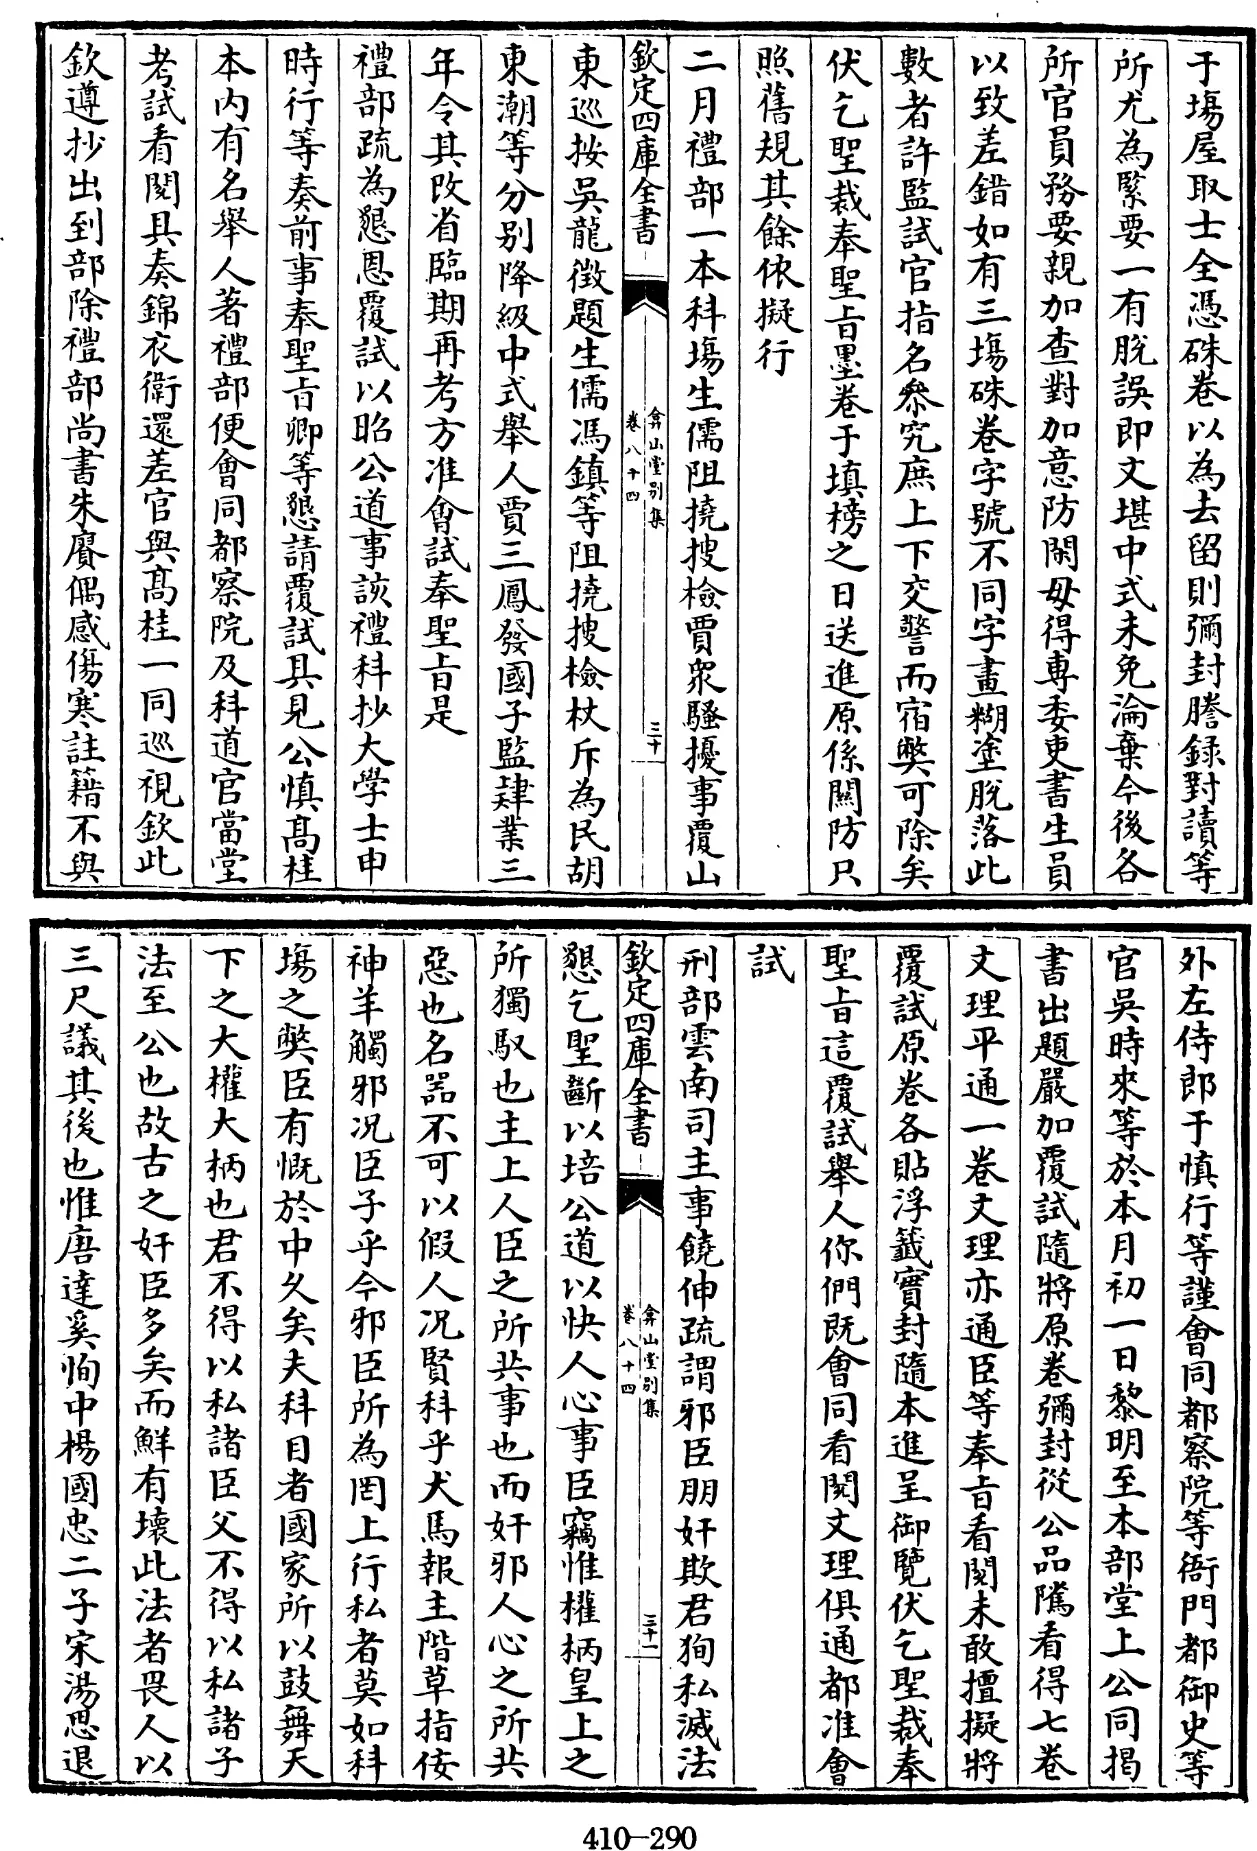 于塲屋取士全憑硃卷以為去留則彌封謄録對讀等
所尤為緊要一有脫誤即文堪中式未免淪棄今後各
所官員務要親加查對加意防閑毋得専委吏書生員
以致差錯如有三塲硃卷字號不同字畫糊塗脫落此
數者許監試官指名叅究庶上下交警而宿弊可除矣
伏乞聖裁奉聖旨墨卷于填榜之日送進原係關防只
照舊規其餘依擬行
二月禮部一本科塲生儒阻撓搜檢賈衆騷擾事覆山
欽定四庫全書
弇山堂別集
卷八十四
三十
東巡按吳龍徴題生儒馮鎮等阻撓搜檢杖斥為民胡
東潮等分别降級中式舉人賈三鳳發國子監肄業三
年令其改省臨期再考方准會試奉聖旨是
禮部疏為懇恩覆試以昭公道事該禮科抄大學士申
時行等奏前事奉聖旨卿等懇請覆試具見公慎髙桂
本内有名舉人著禮部便會同都察院及科道官當堂
考試看閱具奏錦衣衛還差官與髙桂一同巡視欽此
欽遵抄出到部除禮部尚書朱賡偶感傷寒註籍不與
外左侍郎于慎行等謹會同都察院等衙門都御史等
官吳時來等於本月初一日黎明至本部堂上公同揭
書出題嚴加覆試隨將原卷彌封從公品隲看得七卷
文理平通一卷文理亦通臣等奉旨看閱未敢擅擬將
覆試原卷各貼浮籖實封隨本進呈御覽伏乞聖裁奉
聖旨這覆試舉人你們既會同看閱文理俱通都准會
試
刑部雲南司主事饒伸疏謂邪臣朋奸欺君狥私滅法
欽定四庫全書
弇山堂別集
卷八十四
三十一
懇乞聖斷以培公道以快人心事臣竊惟權柄皇上之
所獨馭也主上人臣之所共事也而奸邪人心之所共
惡也名器不可以假人况賢科乎犬馬報主階草指佞
神羊觸邪况臣子乎今邪臣所為罔上行私者莫如科
塲之弊臣有慨於中久矣夫科目者國家所以鼓舞天
下之大權大柄也君不得以私諸臣父不得以私諸子
法至公也故古之奸臣多矣而鮮有壞此法者畏人以
三尺議其後也惟唐達奚恂中楊國忠二子宋湯思退
410-290